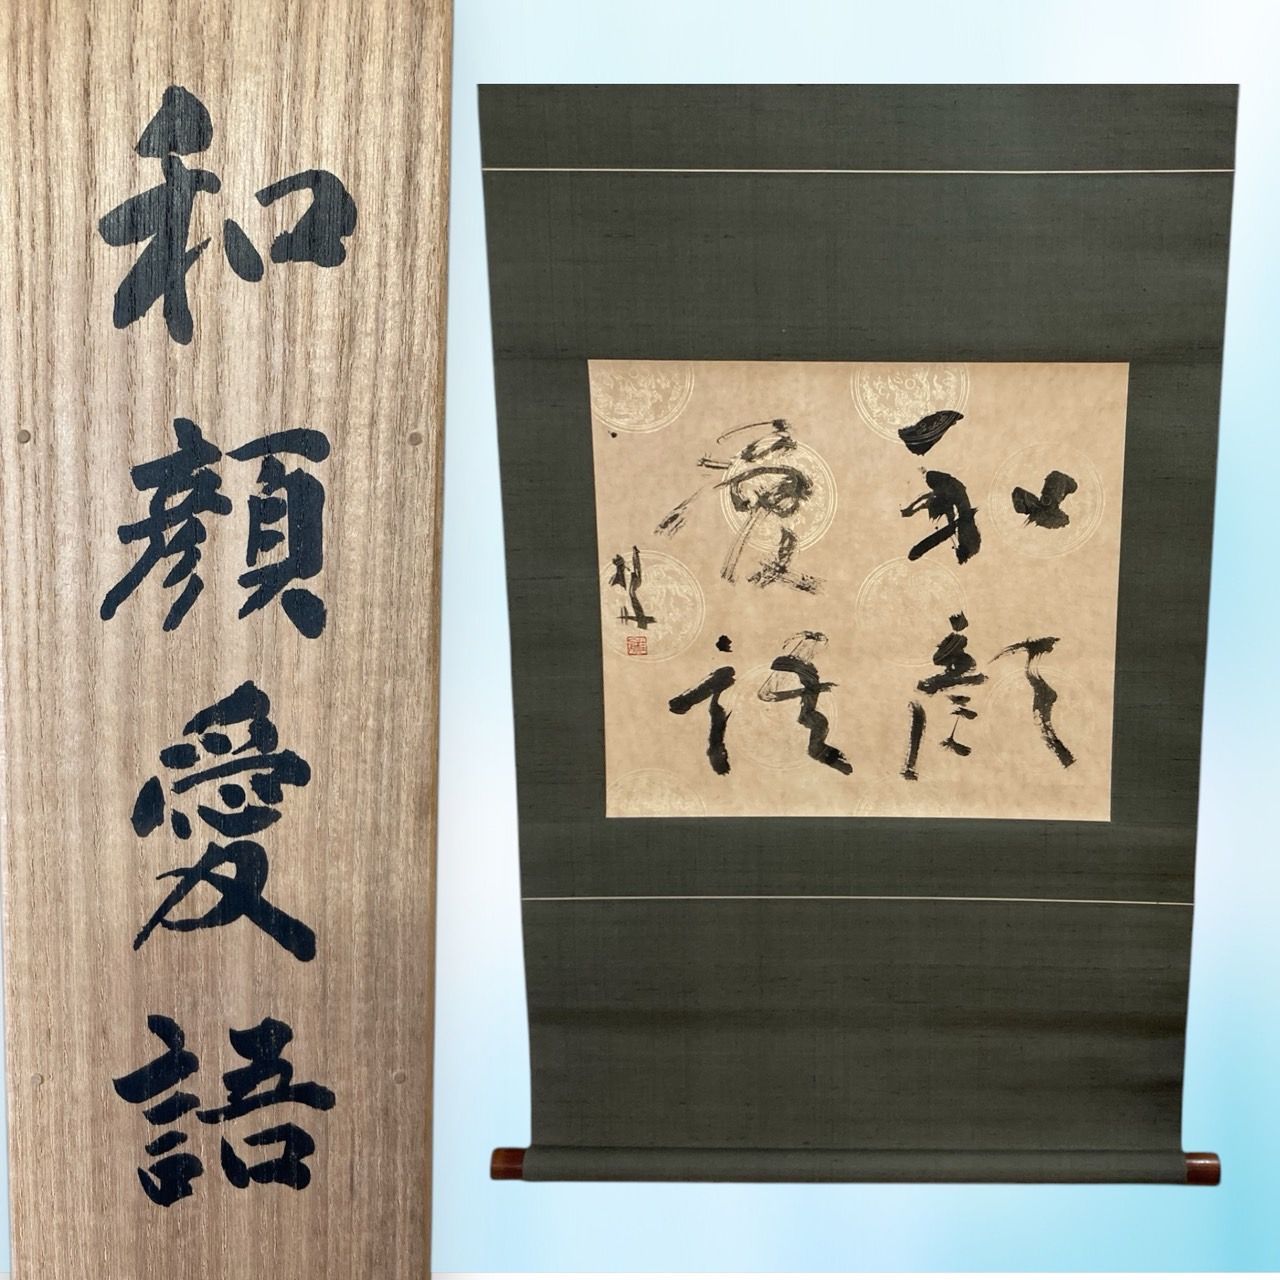 和顔愛語
和顔
愛語